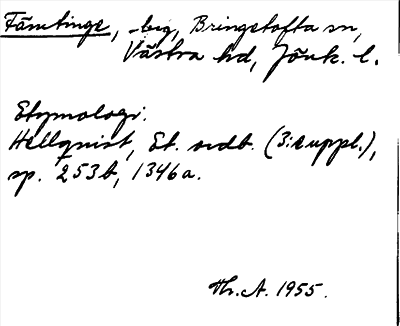 Fämtinge, -beg, Bringetofta sn,
Västra hd, Jönk. l.
Etymologi.
Hellquist, Et. ordb. (3:e uppl.),
sp. 253b, 1346a.
Th. A. 1955.